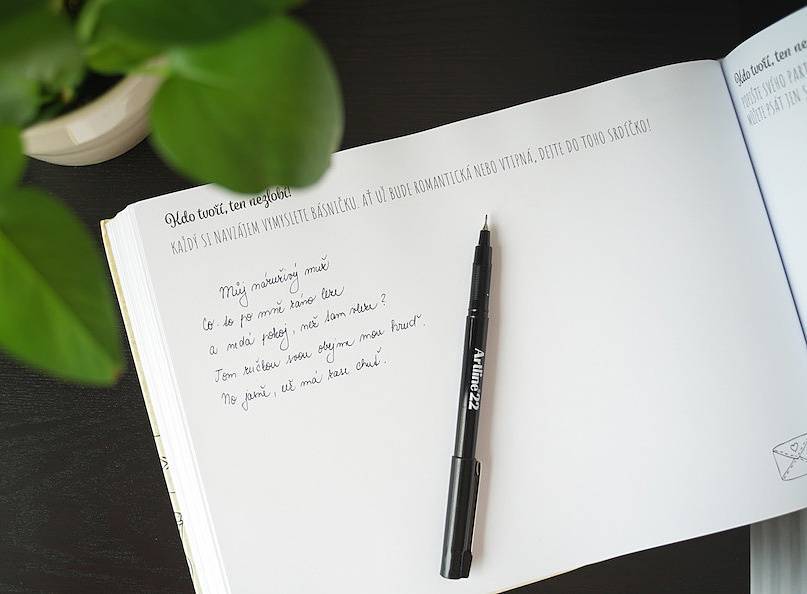 Kdo tvoří, ten nezlobí!
KAŽDÝ SI NAVZÁJEM VYMYSLETE BÁSNIČKU. AŤ UŽ BUDE ROMANTICKÁ NEBO VTIPNÁ, DEJTE DO TOHO SRDÍČKO!
Můj náruživý muž
Co to po mně ráno leze
a nedá pokoj, než tam vleze?
Tom ručkou svou obejme mou hruď.
No jasně, už má zase chuť.
Artline 22
Kdo tvoří, ten ne
POPIŠTE SVÉHO PART
MŮŽETE PSÁT JEN S